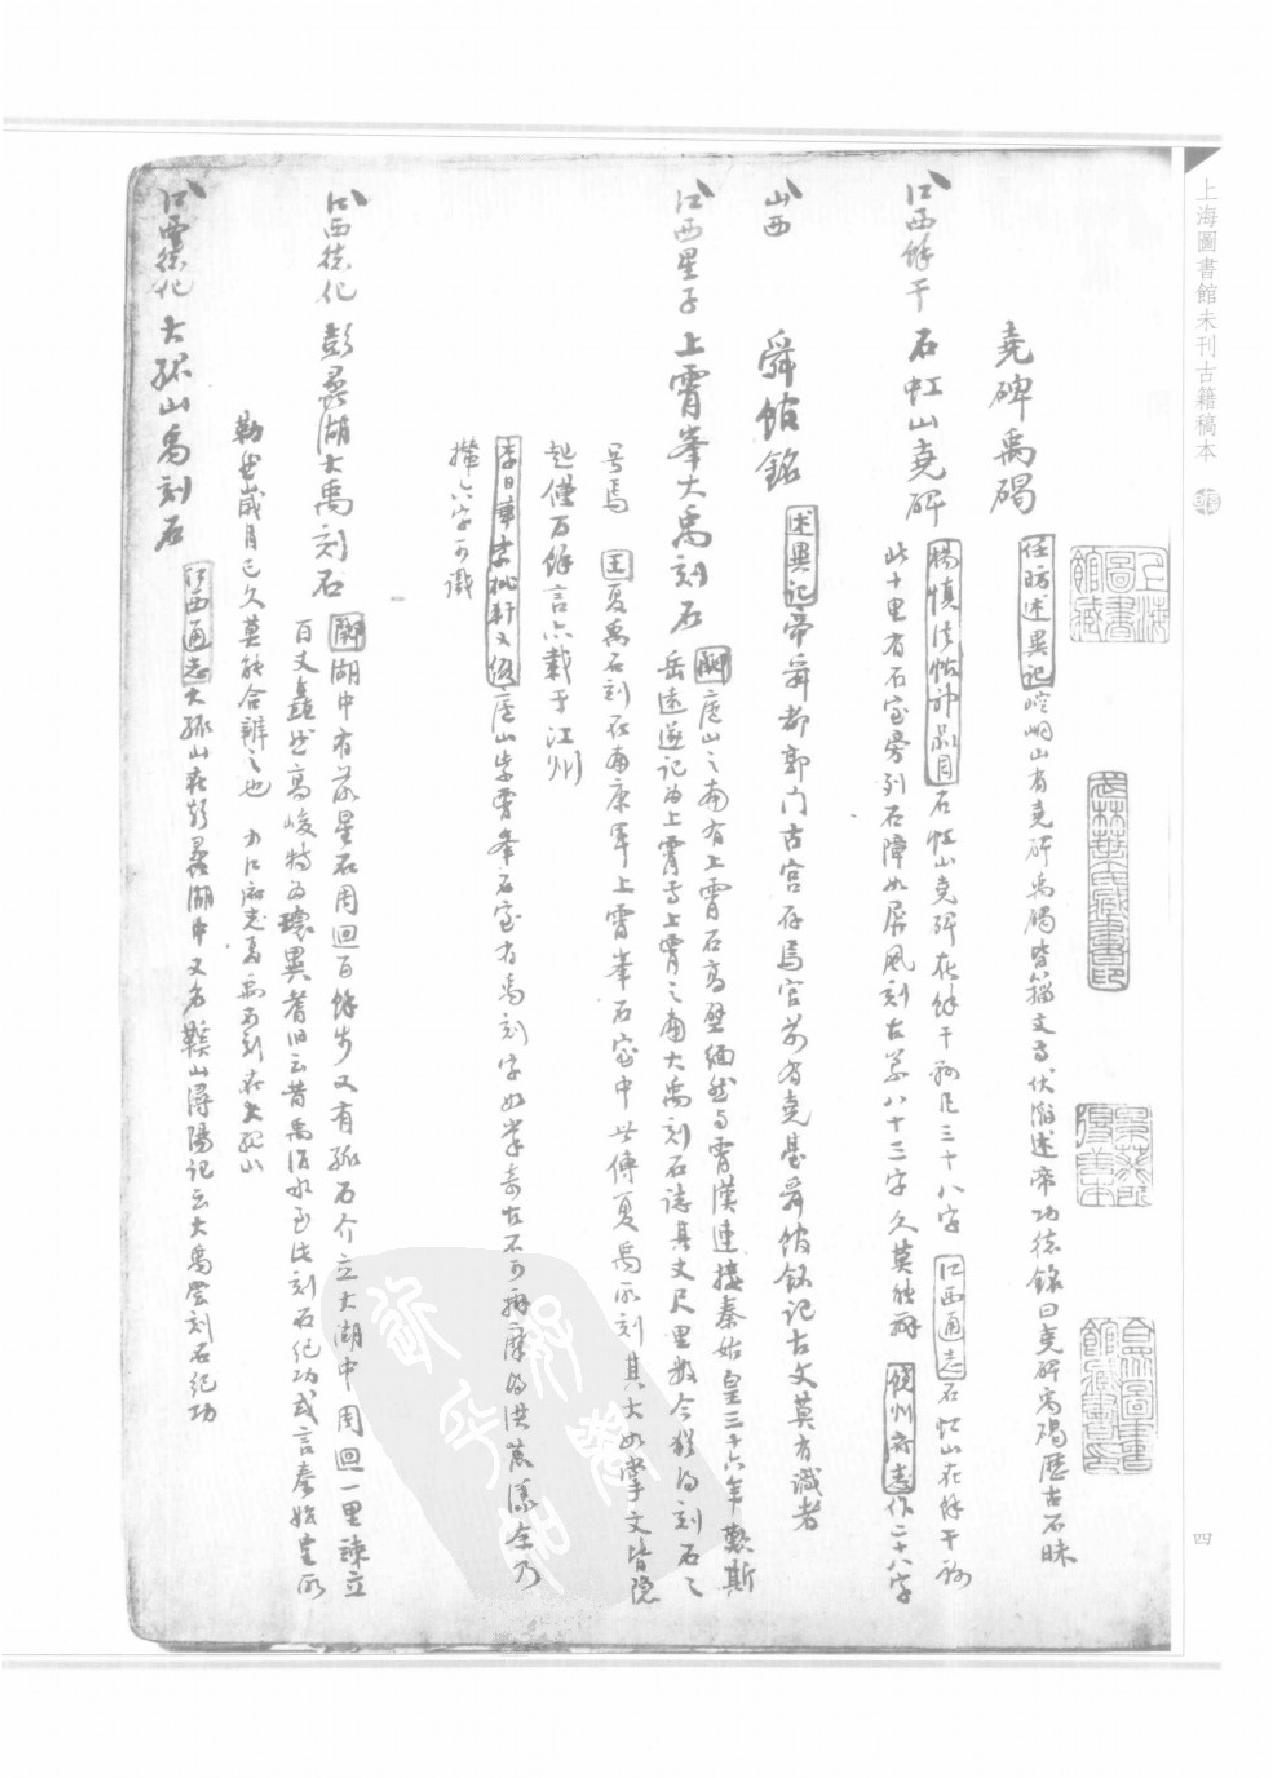 上海圖書館未刊古籍稿本
四
上海圖書館藏
武林葉氏藏書印
合眾圖書館藏書印
堯碑禹碣
任昉述異記崆峒山有堯碑禹碣皆籀文焉伏滔述帝功德銘曰堯碑禹碣歷古不昧
江西餘干 石虹山堯碑
楊慎法帖神品目石虹山堯碑在餘干縣凡三十八字 江西通志石虹山在餘干縣
此十里有石室旁列石障如屏風刻古篆八十三字久莫能辨 饒州府志作二十八字
山西 舜館銘
述異記帝舜都郭門古宮存焉宮前有堯臺舜館銘記古文莫有識者
江西星子 上霄峯大禹刻石
酈廬山之南有上霄石高壁緬然与霄漢連接秦始皇三十六年歎斯
岳遠遂記為上霄焉上霄之南大禹刻石誌其丈尺里數今猶得刻石之
号焉 王夏禹石刻在南康軍上霄峯石室中世傳夏禹所刻其大如掌文皆隱
起僅百餘言六載于江州
李日華紫桃軒又綴廬山紫霄峯石室有禹刻字如掌奇古不可辨摩得洪荒漾余乃
攆六字可識
江西德化 彭蠡湖大禹刻石
酈湖中有落星石周回百餘步又有孤石介立大湖中周回一里竦立
百丈矗然高峻特為瓌異耆旧云昔禹治水至此刻石紀功或言秦始皇所
勒然歲月已久莫能合辨之也 九江府志禹所刻在大孤山
江西德化 大孤山禹刻石
江西通志大孤山在彭蠡湖中又名鞵山潯陽記云大禹曾刻石紀功